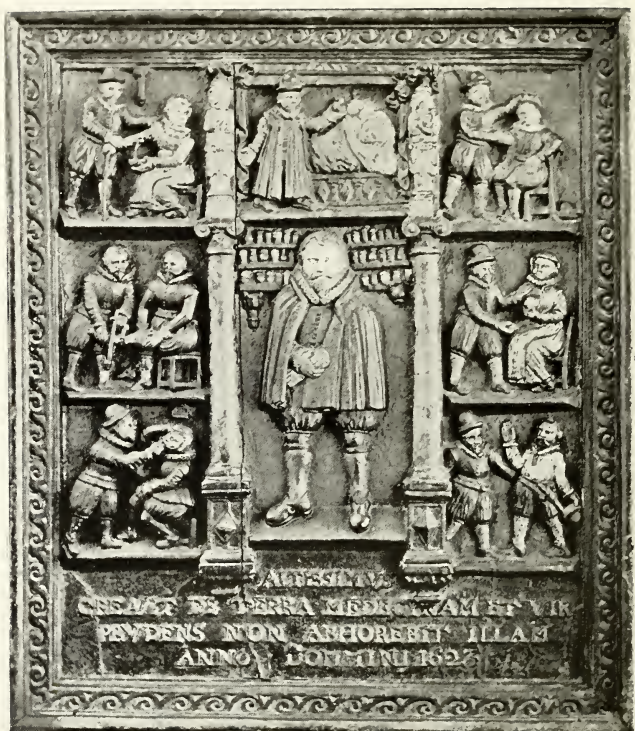 ALTISSIMVS
CREAVIT DE TERRA MEDICINAM ET VIR
PRVDENS NON ABHOREBIT ILLAM
ANNO DOMMINI 1623